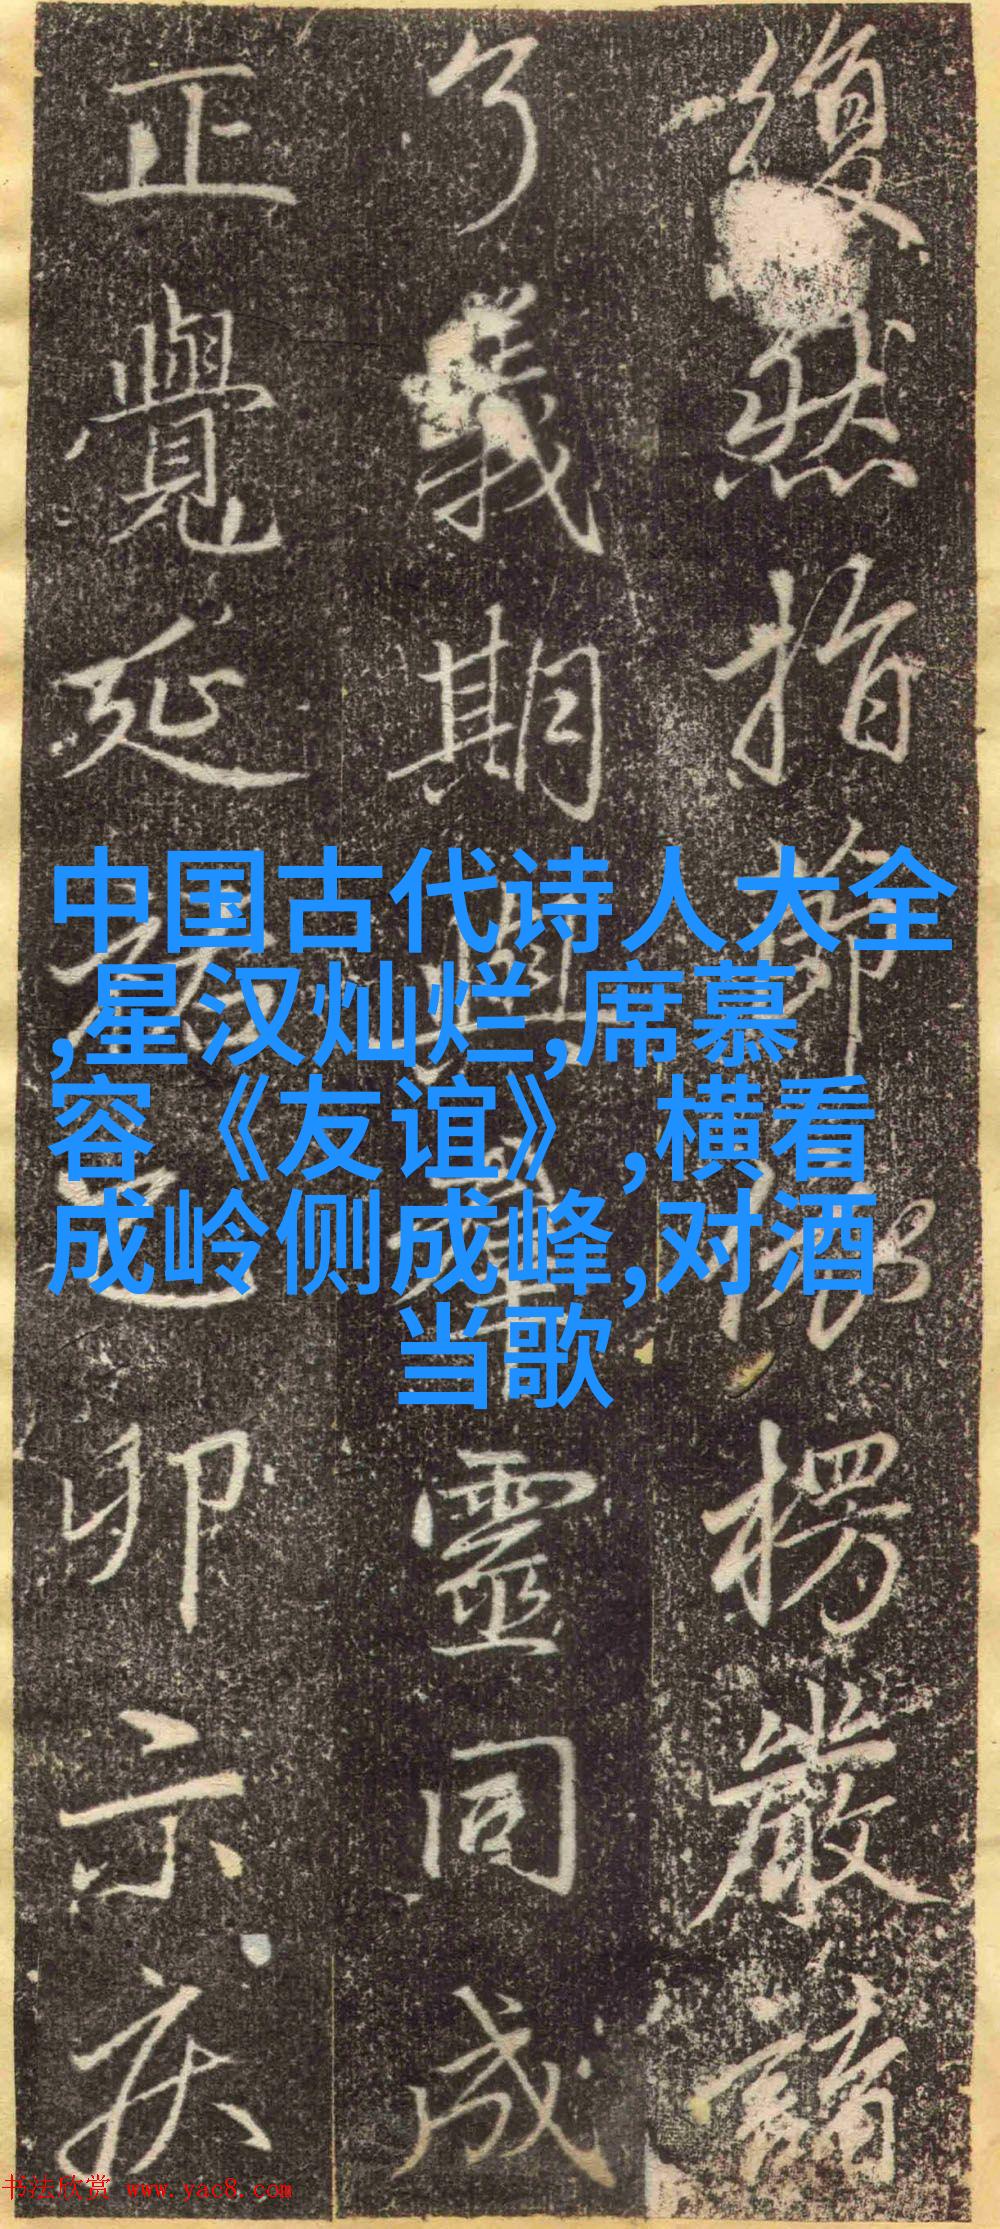 復然指節楞嚴
了義期與群靈同成
正覺延祐乙卯示
中国古代诗人大全
,星汉灿烂,席慕
容《友谊》,横看
成岭侧成峰,对酒
当歌
书法欣赏 www.yac8.com